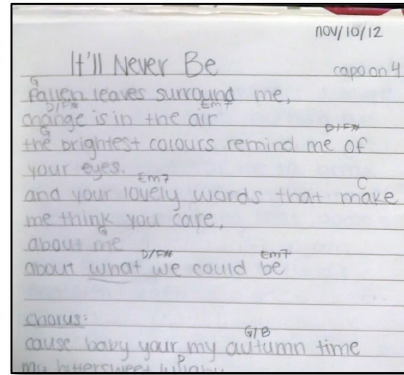 nov/10/12
It'll Never Be
capo on 4
G
Fallen leaves surround me,
D/F# Em7
change is in the air
G D/F#
the brightest colours remind me of
your eyes.
Em7 C
and your lovely words that make
me think you care,
G
about me
D/F# Em7
about what we could be
chorus:
G/B
cause baby your my autumn time
D
my bittersweet lullaby